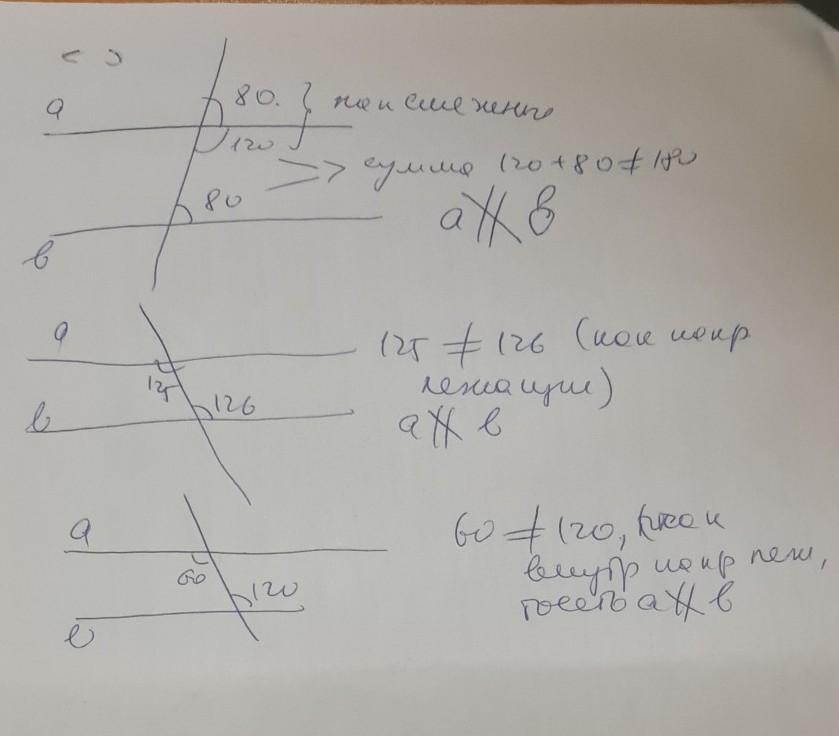 < >
a
80. } как смежные
120
сумма 120+80≠180
80
a∦b
b
a
125≠126 (как накр
125
лежащие)
126
b
a∦b
60≠120, как
a
внутр накр леж,
60
120
тоесть a∦b
b